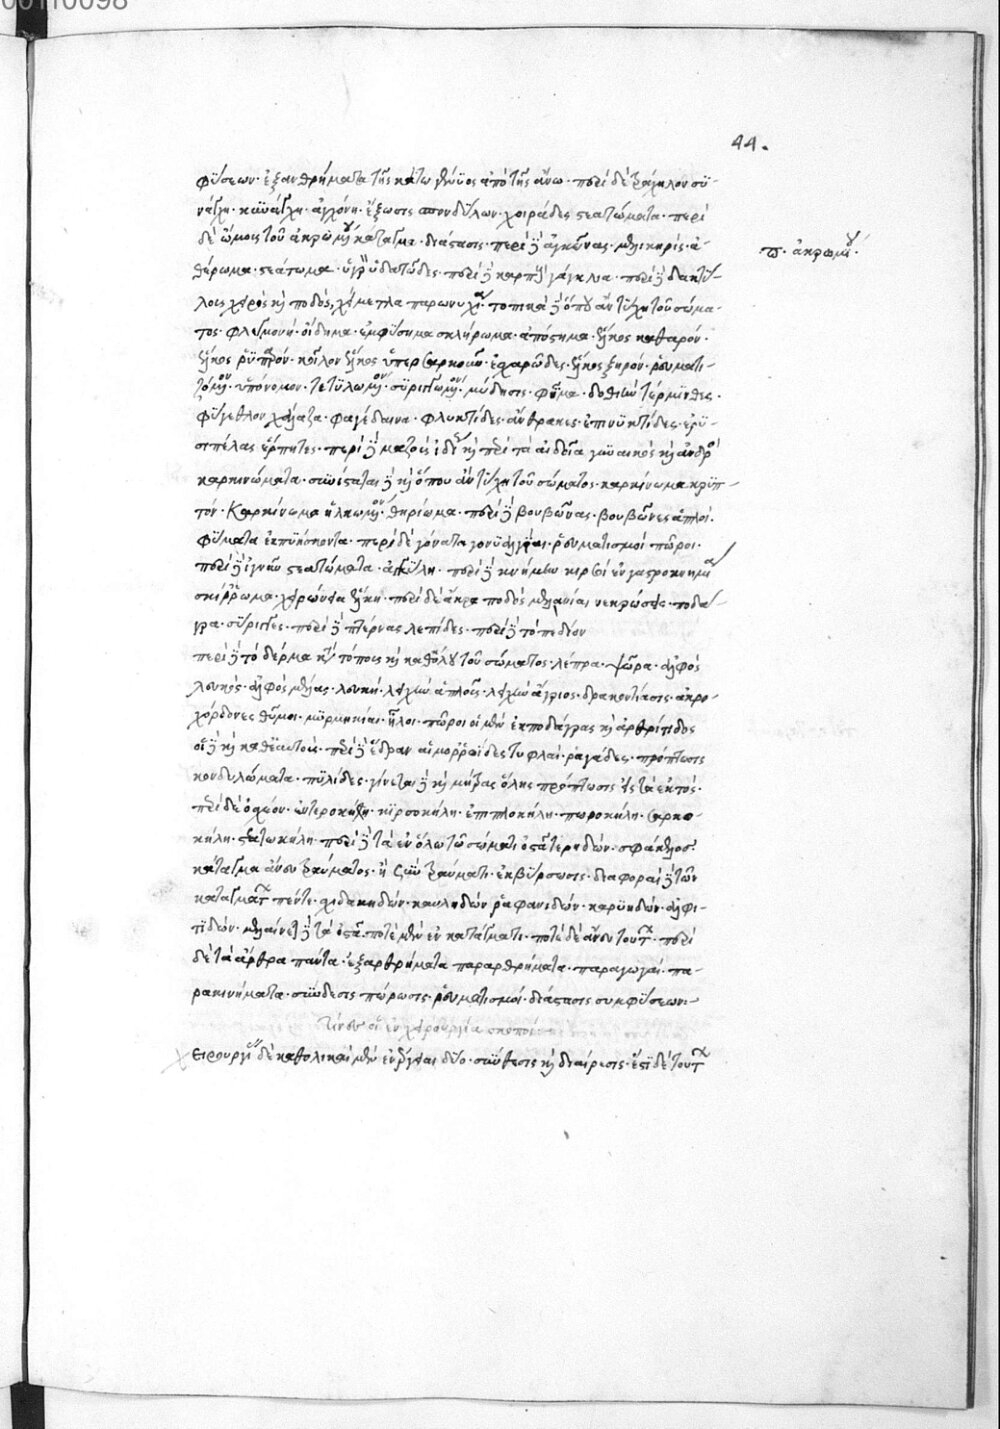 44.
φύσεων· ἐξανθρήματα τῆς κάτω γένυος ἀπὸ τῆς ἄνω· περὶ δὲ τράχηλον συ-
νάγχη· κυνάγχη· ἀγχόνη· ἔξωσις σπονδύλων· χοιράδες στεατώματα· περὶ
δὲ ὤμοις τοῦ ἀκρωμίου κάταγμα· διάστασις· περὶ δὲ ἀγκῶνας· μελικηρὶς· ἀ-
π. ἀκρωμίου.
θέρωμα· στεάτωμα· ὑγρὸν ὑδατῶδες· περὶ δὲ καρπὸν γάγγλια· περὶ δὲ δακτύ-
λοις χειρὸς καὶ ποδὸς, χίμετλα παρωνυχία· τοπικὰ δὲ ὅπου ἂν τύχῃ τοῦ σώμα-
τος· φλεγμονή· οἴδημα· ἐμφύσημα σκλήρωμα· ἀπόστημα· ἕλκος καθαρόν·
ἕλκος ῥυπαρόν· κοῖλον ἕλκος ὑπερσαρκοῦν· ἐσχαρῶδες· ἕλκος ξηρόν· ῥευματι-
ζόμενον· ὑπόνομον· τετυλωμένον· συριγγωμένον· μύδησις· φῦμα· δοθιὼν τέρμινθες·
φύγεθλον χάλαζα· φαγέδαινα· φλυκτίδες· ἄνθρακες· ἐπινυκτίδες· ἐρυ-
σιπέλας ἕρπητες· περὶ δὲ μαζοῖς ἰδίως καὶ περὶ τὰ αἰδοῖα γυναικὸς καὶ ἀνδρὸς
καρκινώματα· συνίσταται δὲ καὶ ὅπου ἂν τύχῃ τοῦ σώματος· καρκίνωμα κρυπ-
τόν· Καρκίνωμα ἡλκωμένον· θηρίωμα· περὶ δὲ βουβῶνας· βουβῶνες ἁπλοῖ·
φύματα ἐκπυΐσκοντα· περὶ δὲ γόνατα γονυαλγίαι· ῥευματισμοί· πῶροι·
περὶ δὲ ἰγνῦν στεατώματα· ἀγκύλη· περὶ δὲ κνήμην κιρσοὶ ἐν γαστροκνημίᾳ
σκίρρωμα· χειρώνεια ἕλκη· περὶ δὲ ἄκρα ποδὸς μελανίαι νεκρώσεις· ποδά-
γρα· σύριγγες· περὶ δὲ πτέρνας λεπίδες· περὶ δὲ τὸ πεδίον
περὶ δὲ τὸ δέρμα κατὰ τόποις καὶ καθόλου τοῦ σώματος· λέπρα· ψώρα· ἀλφὸς
λευκός· ἀλφὸς μέλας· λευκή· λειχὴν ἁπλοῦς· λειχὴν ἄγριος· δρακοντίασις· ἀκρο-
χόρδονες θύμοι· μυρμηκίαι· ἧλοι· πῶροι οἱ μὲν ἐκ ποδάγρας καὶ ἀρθρίτιδος
οἱ δὲ καὶ καθ' ἑαυτοὺς· περὶ δὲ ἕδραν αἱμορροΐδες τυφλαί· ῥαγάδες· πρόπτωσις
κονδυλώματα· πυλίδες· γίνεται δὲ καὶ μήτρας ὅλης πρόπτωσις εἰς τὰ ἐκτός·
περὶ δὲ ὄσχεον· ἐντεροκήλη· κιρσοκήλη· ἐπιπλοκήλη· πωροκήλη· σαρκο-
κήλη· στεατωκήλη· περὶ δὲ τὰ ἐν ὅλῳ τῷ σώματι ὀστᾶ τερηδών· σφάκελος·
κάταγμα ἄνευ τραύματος· ἢ σὺν τραύματι· ἐκβύρσωσις· διαφοραὶ δὲ τῶν
καταγμάτων πέντε· σχιδακηδόν· καυληδὸν ῥαφανιδόν· καρυηδόν· ἀλφι-
τιδόν· μελαίνεται δὲ τὰ ὀστᾶ ποτὲ μὲν ἐν κατάγματι· ποτὲ δὲ ἄνευ τούτων· περὶ
δὲ τὰ ἄρθρα πάντα· ἐξαρθρήματα παραρθρήματα· παραγωγαί· πα-
ρακινήματα· συνδέσις πώρωσις· ῥευματισμοί· διάστασις συμφύσεων·
τίνες οἱ ἐν χειρουργία σκοποί·
χειρουργίας δὲ καθολικαὶ μὲν ἐνέργειαι δύο· σύνθεσις καὶ διαίρεσις· ἔστι δὲ τούτων